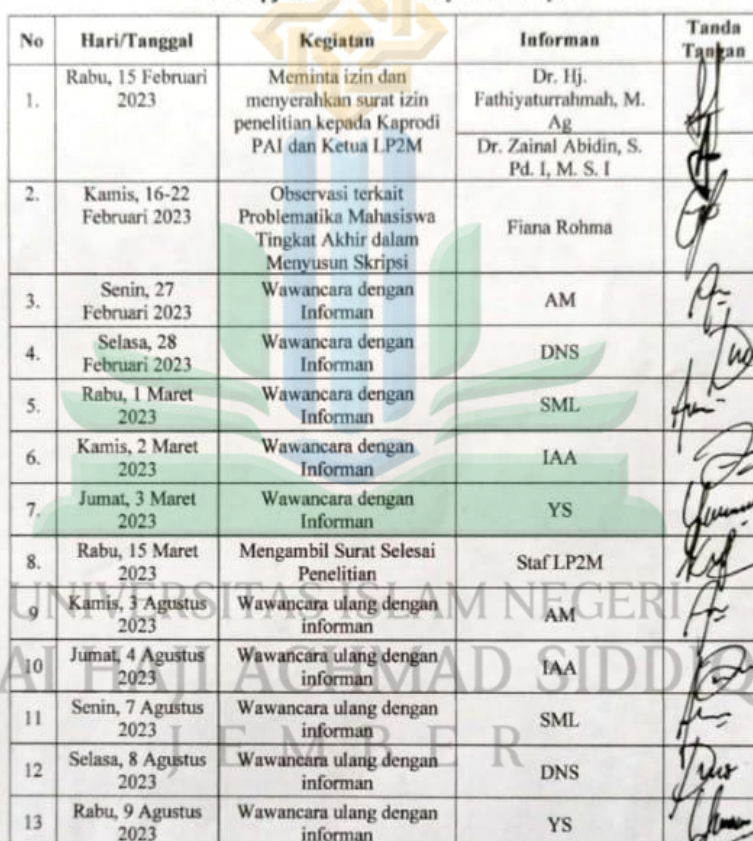 No Hari/Tanggal Kegiatan Informan Tanda
Tangan
1. Rabu, 15 Februari
2023
Meminta izin dan
menyerahkan surat izin
penelitian kepada Kaprodi
PAI dan Ketua LP2M
Dr. Hj.
Fathiyaturrahmah, M.
Ag
Dr. Zainal Abidin, S.
Pd. I, M. S. I
2. Kamis, 16-22
Februari 2023
Observasi terkait
Problematika Mahasiswa
Tingkat Akhir dalam
Menyusun Skripsi
Fiana Rohma
3. Senin, 27
Februari 2023
Wawancara dengan
Informan
AM
4. Selasa, 28
Februari 2023
Wawancara dengan
Informan
DNS
5. Rabu, 1 Maret
2023
Wawancara dengan
Informan
SML
6. Kamis, 2 Maret
2023
Wawancara dengan
Informan
IAA
7. Jumat, 3 Maret
2023
Wawancara dengan
Informan
YS
8. Rabu, 15 Maret
2023
Mengambil Surat Selesai
Penelitian
Staf LP2M
9 Kamis, 3 Agustus
2023
Wawancara ulang dengan
informan
AM
10 Jumat, 4 Agustus
2023
Wawancara ulang dengan
informan
IAA
11 Senin, 7 Agustus
2023
Wawancara ulang dengan
informan
SML
12 Selasa, 8 Agustus
2023
Wawancara ulang dengan
informan
DNS
13 Rabu, 9 Agustus
2023
Wawancara ulang dengan
informan
YS
UNIVERSITAS ISLAM NEGERI
AI HAJI ACHMAD SIDDIQ
JEMBER